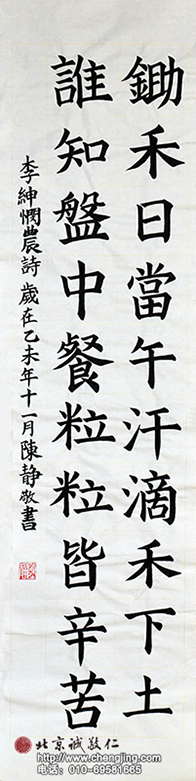 鋤禾日當午汗滴禾下土
誰知盤中餐粒粒皆辛苦
李紳憫農詩 歲在乙未年十一月陳静敬書
北京诚敬仁
www.chengjing.com
电话：010-89581865